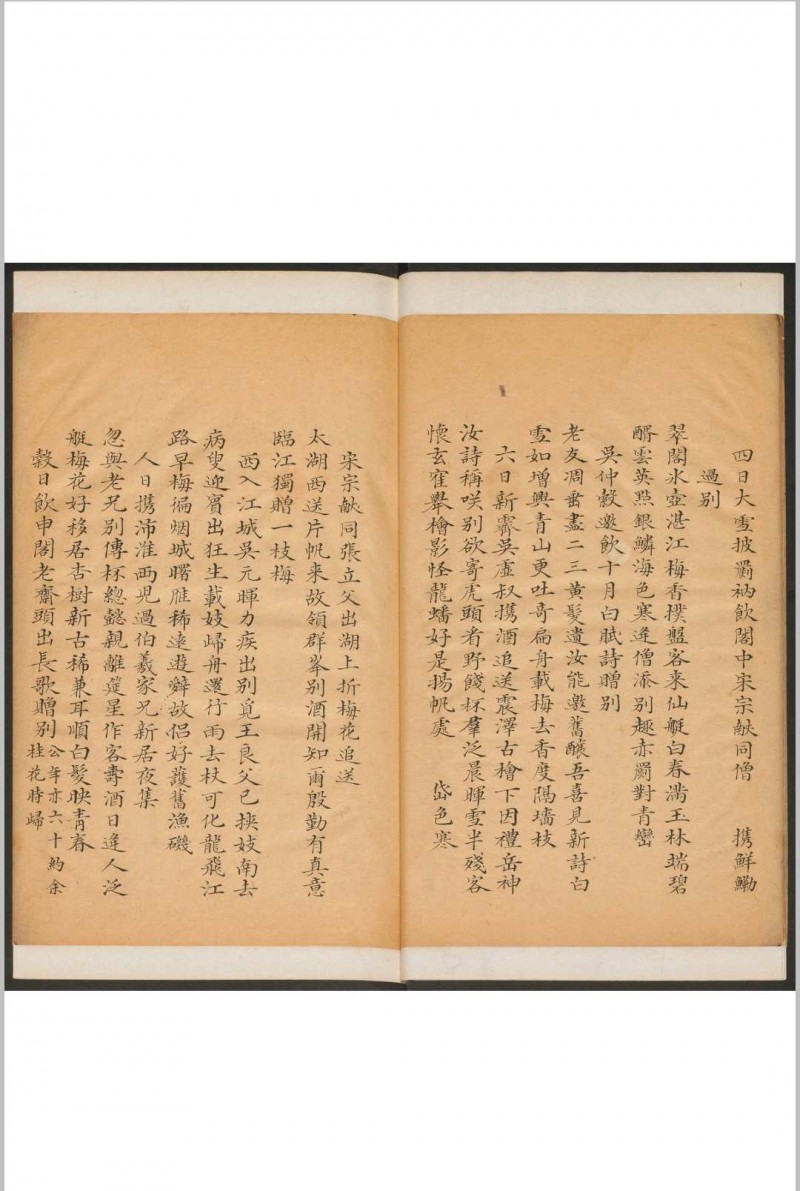 四日大雪披罽衲飲閣中宋宗獻同僧 携鮮鱖
過別
翠閣氷壺湛江梅香撲盤客来仙艇白春滿玉林端碧
醑雲英㸃銀鱗海色寒逢僧添别趣赤罽對青巒
吳仲穀邀飲十月白賦詩贈别
老友凋垂盡二三黄髮遺汝能邀舊醸吾喜見新詩白
雪如增興青山更吐奇扁舟載梅去香度隔墻枝
六日新霽吳虚叔携酒追送震澤古檜下因禮岳神
汝詩稱咲别欲寄虎頭看野餞杯羣泛晨暉雪半殘客
懷玄窪舉檜影怪龍蟠好是揚帆處 岱色寒
宋宗獻同張立父出湖上折梅花追送
太湖西送片帆来故領群峯别酒開知爾殷勤有真意
臨江獨贈一枝梅
西入江城吳元暉力疾出别覓王良父已挾妓南去
病叟迎賔出狂生載妓歸舟還行雨去杖可化龍飛江
路早梅徧烟城曙雁稀遠遊辭故侣好護舊漁磯
人日携沛淮兩兒過伯羲家兄新居夜集
忽與老兄别傳杯總懿親離筵星作客壽酒日逢人泛
艇梅花好移居杏樹新古稀兼耳順白髮映青春
穀日飲申閣老齋頭出長歌贈别公年亦六十約余
桂花時歸